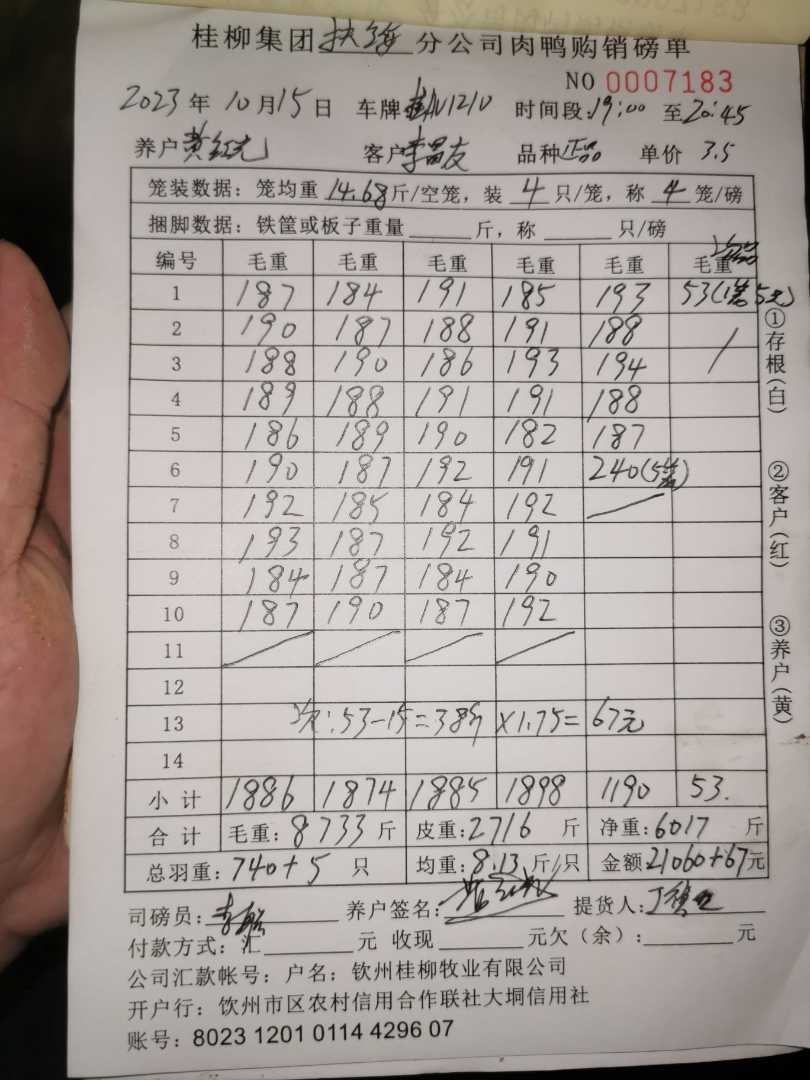 桂柳集团扶绥分公司肉鸭购销磅单
NO 0007183
2023年10月15日 车牌 1210 时间段:19:00至20:45
养户黄红光 客户李昌友 品种正品 单价 3.5
笼装数据：笼均重 14.68斤/空笼，装 4 只/笼，称 4 笼/磅
捆脚数据：铁筐或板子重量 斤，称 只/磅
编号 毛重 毛重 毛重 毛重 毛重 毛重
1 187 184 191 185 193 53(1笼5只)
2 190 187 188 191 188 /
3 188 190 186 193 194
4 189 188 191 191 188
5 186 189 190 182 187
6 190 187 192 191 240(5笼)
7 192 185 184 192
8 193 187 192 191
9 184 187 184 190
10 187 190 187 192
11
12
13 次:53-15=38斤×1.75=67元
14
小计 1886 1874 1885 1898 1190 53.
合计 毛重:8733斤 皮重:2716斤 净重:6017斤
总羽重:740+5 只 均重:8.13斤/只 金额21060+67元
司磅员: 养户签名: 提货人:
付款方式：汇 元 收现 元欠（余）: 元
公司汇款帐号：户名：钦州桂柳牧业有限公司
开户行：钦州市区农村信用合作联社大垌信用社
账号：8023 1201 0114 4296 07
①存根(白)
②客户(红)
③养户(黄)